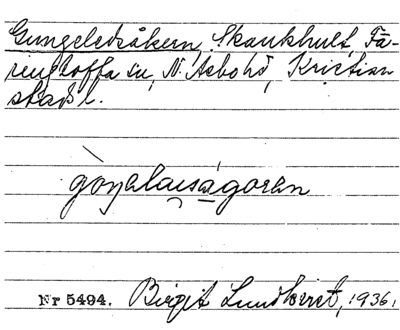 Gungeledsåkern, Skankhult, Fä-
ringtofta sn, N. Åsbo hd, Kristian
stads l.
Nr 5494. Birgit Lundkvist, 1936,